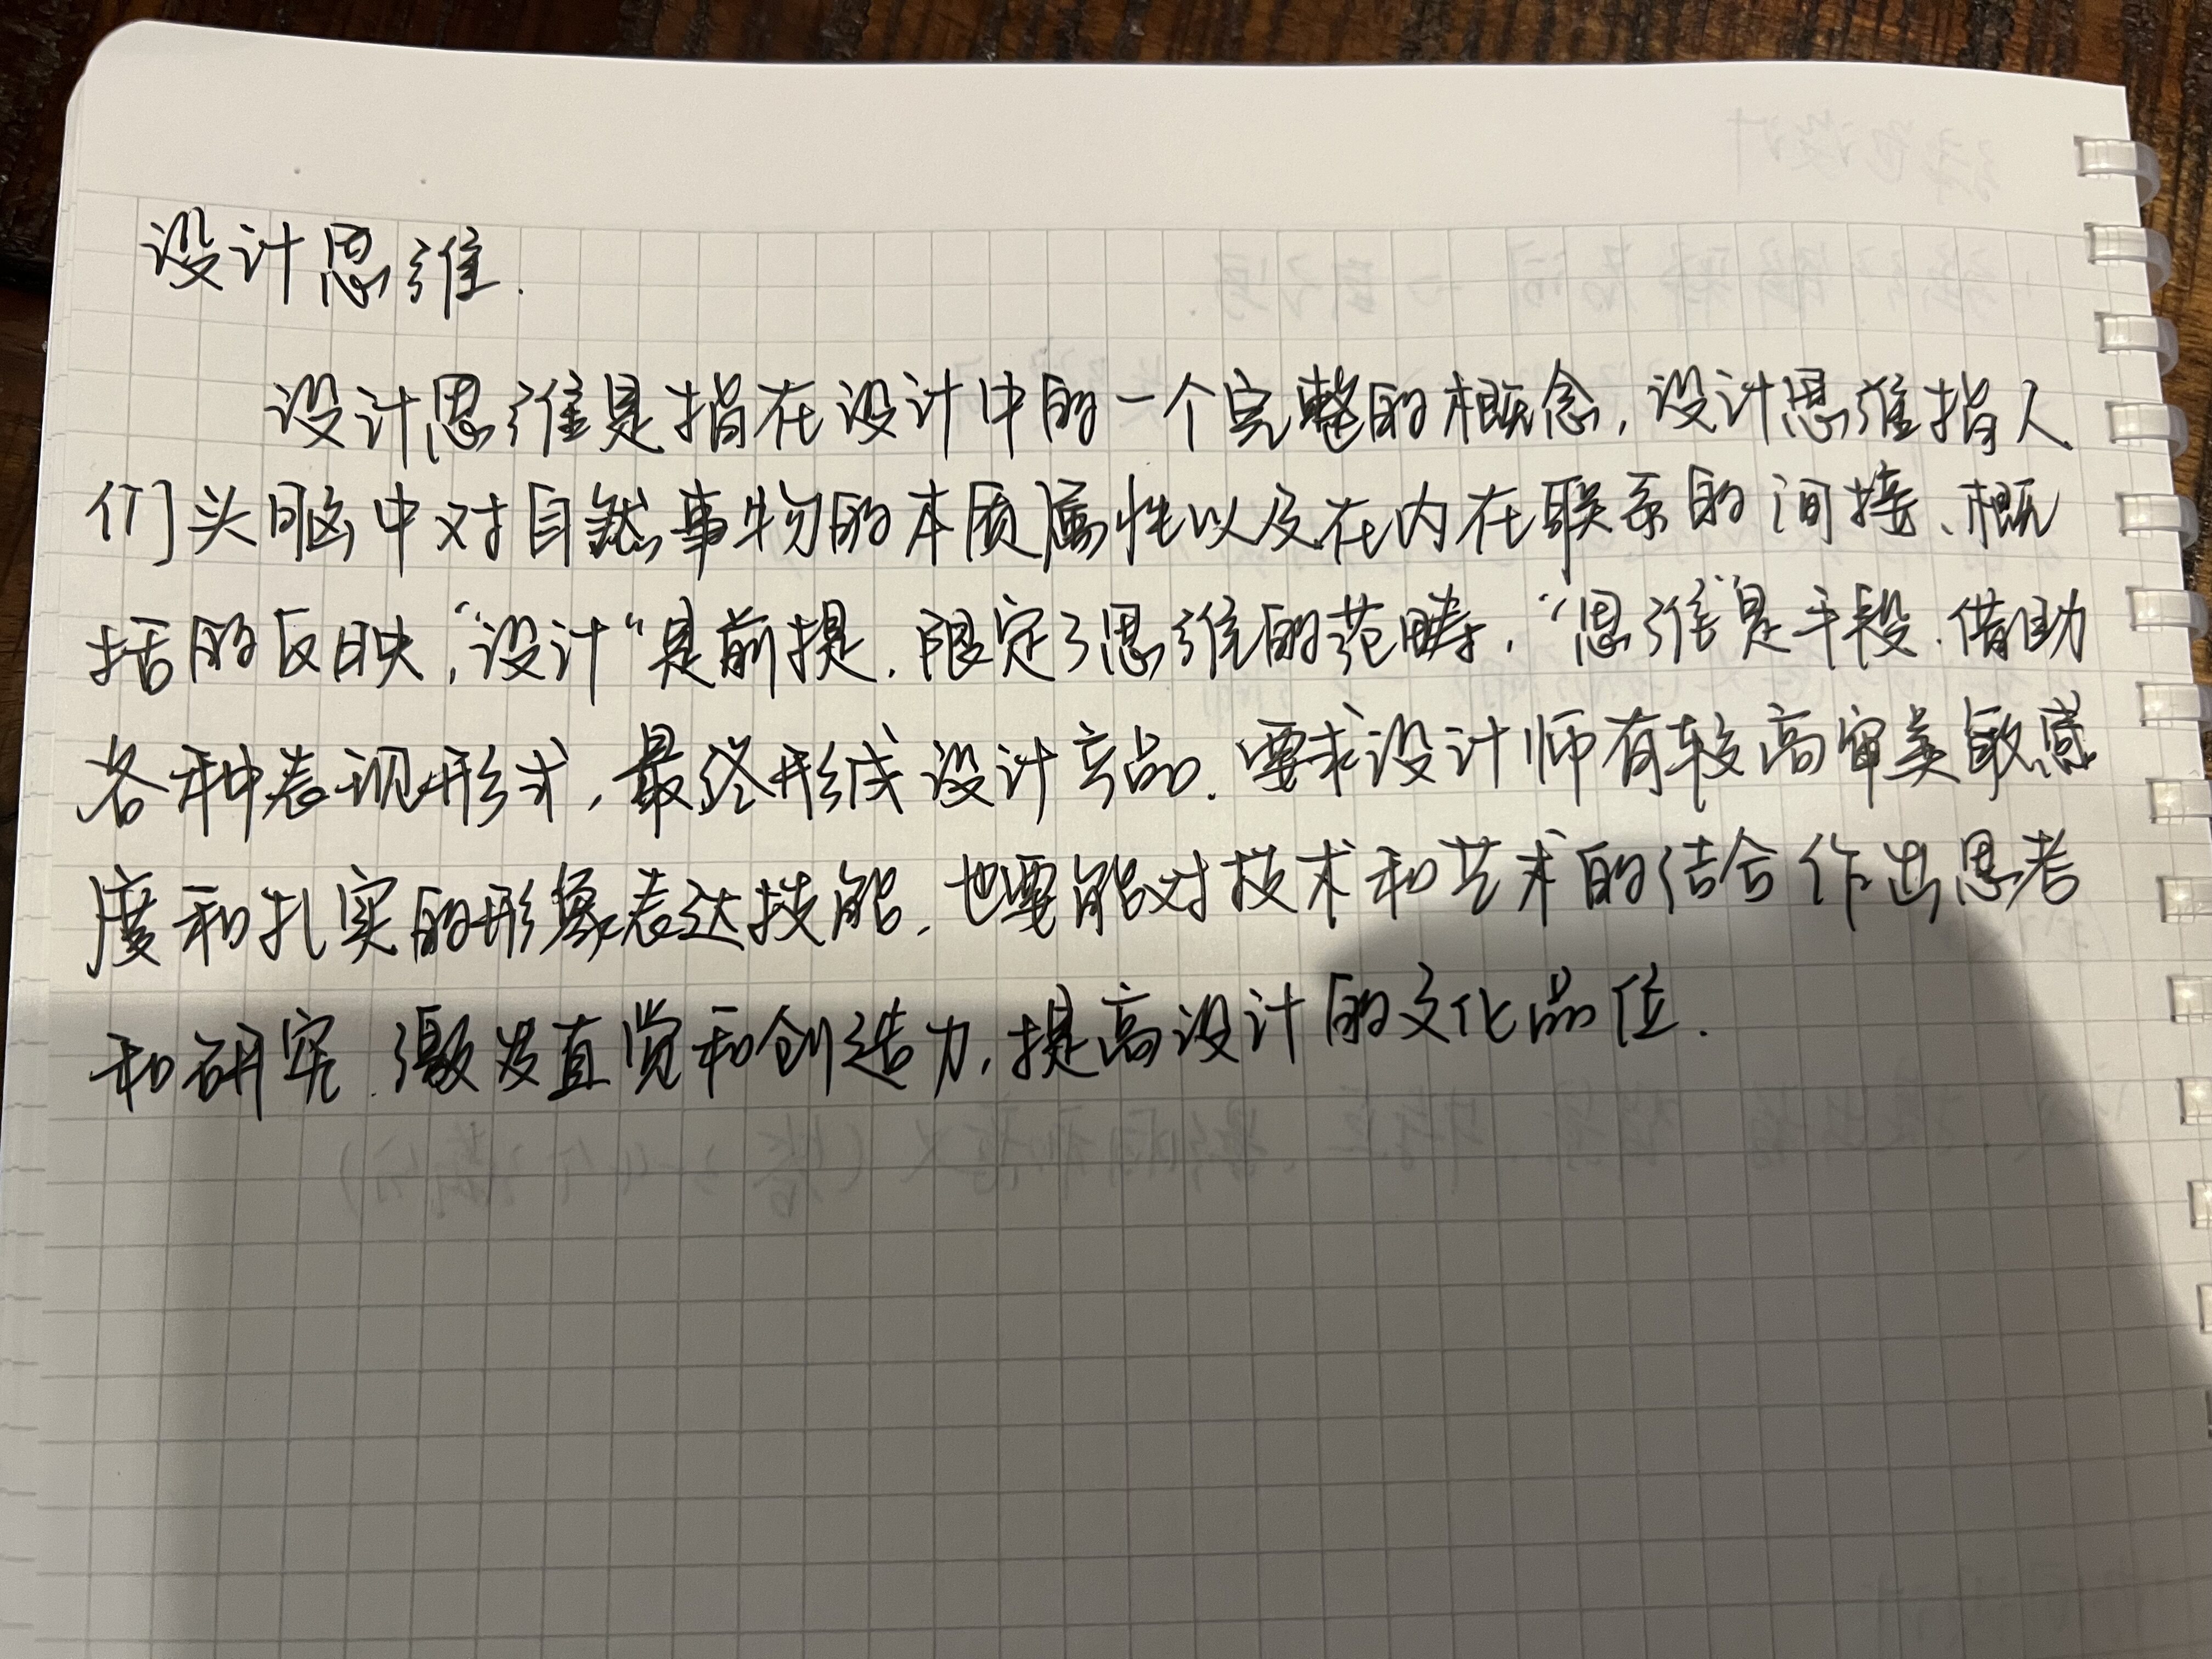 设计思维.
设计思维是指在设计中的一个完整的概念,设计思维指人
们头脑中对自然事物的本质属性以及在内在联系的间接、概
括的反映,“设计“是前提.限定了思维的范畴,“思维”是手段.借助
各种表现形式,最终形成设计产品.要求设计师有较高审美敏感
度和扎实的形象表达技能.也要能对技术和艺术的结合作出思考
和研究.激发直觉和创造力,提高设计的文化品位.